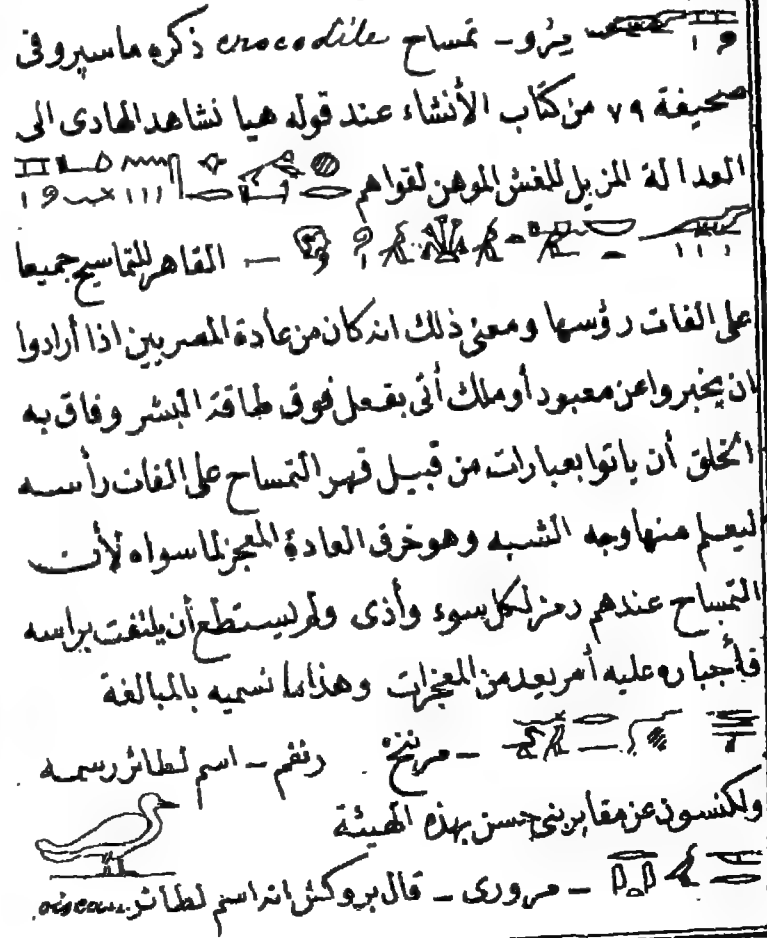 يرو - تمساح crocodile ذكره ماسپرو فى
صحيفة ٧٩ من كتاب الأنشاء عند قوله هيا نشاهد الهادى الى
العدالة المزيل للغش الموهن لقواهم
— القاهر للتماسيح جميعا
على الفات رؤسها ومعنى ذلك انه كان من عادة المصريين اذا أرادوا
ان يخبروا عن معبود أو ملك أتى بفعل فوق طاقة البشر وفاق به
الخلق أن ياتوا بعبارات من قبيل قهر التمساح على الفات رأسه
ليعلم منها وجه الشبه وهو خرق العادة المعجز لما سواه لأن
التمساح عندهم رمز لكل سوء وأذى ولم يستطع أن يلتفت براسه
فأجباره عليه أمر بعد من المعجزات وهذا ما نسميه بالمبالغة
- اسم لطائر رسمه
ولكنسون عن مقابر بنى حسن بهذه الهيئة
- مرورى - قال بروكش انه اسم لطائر oiseau